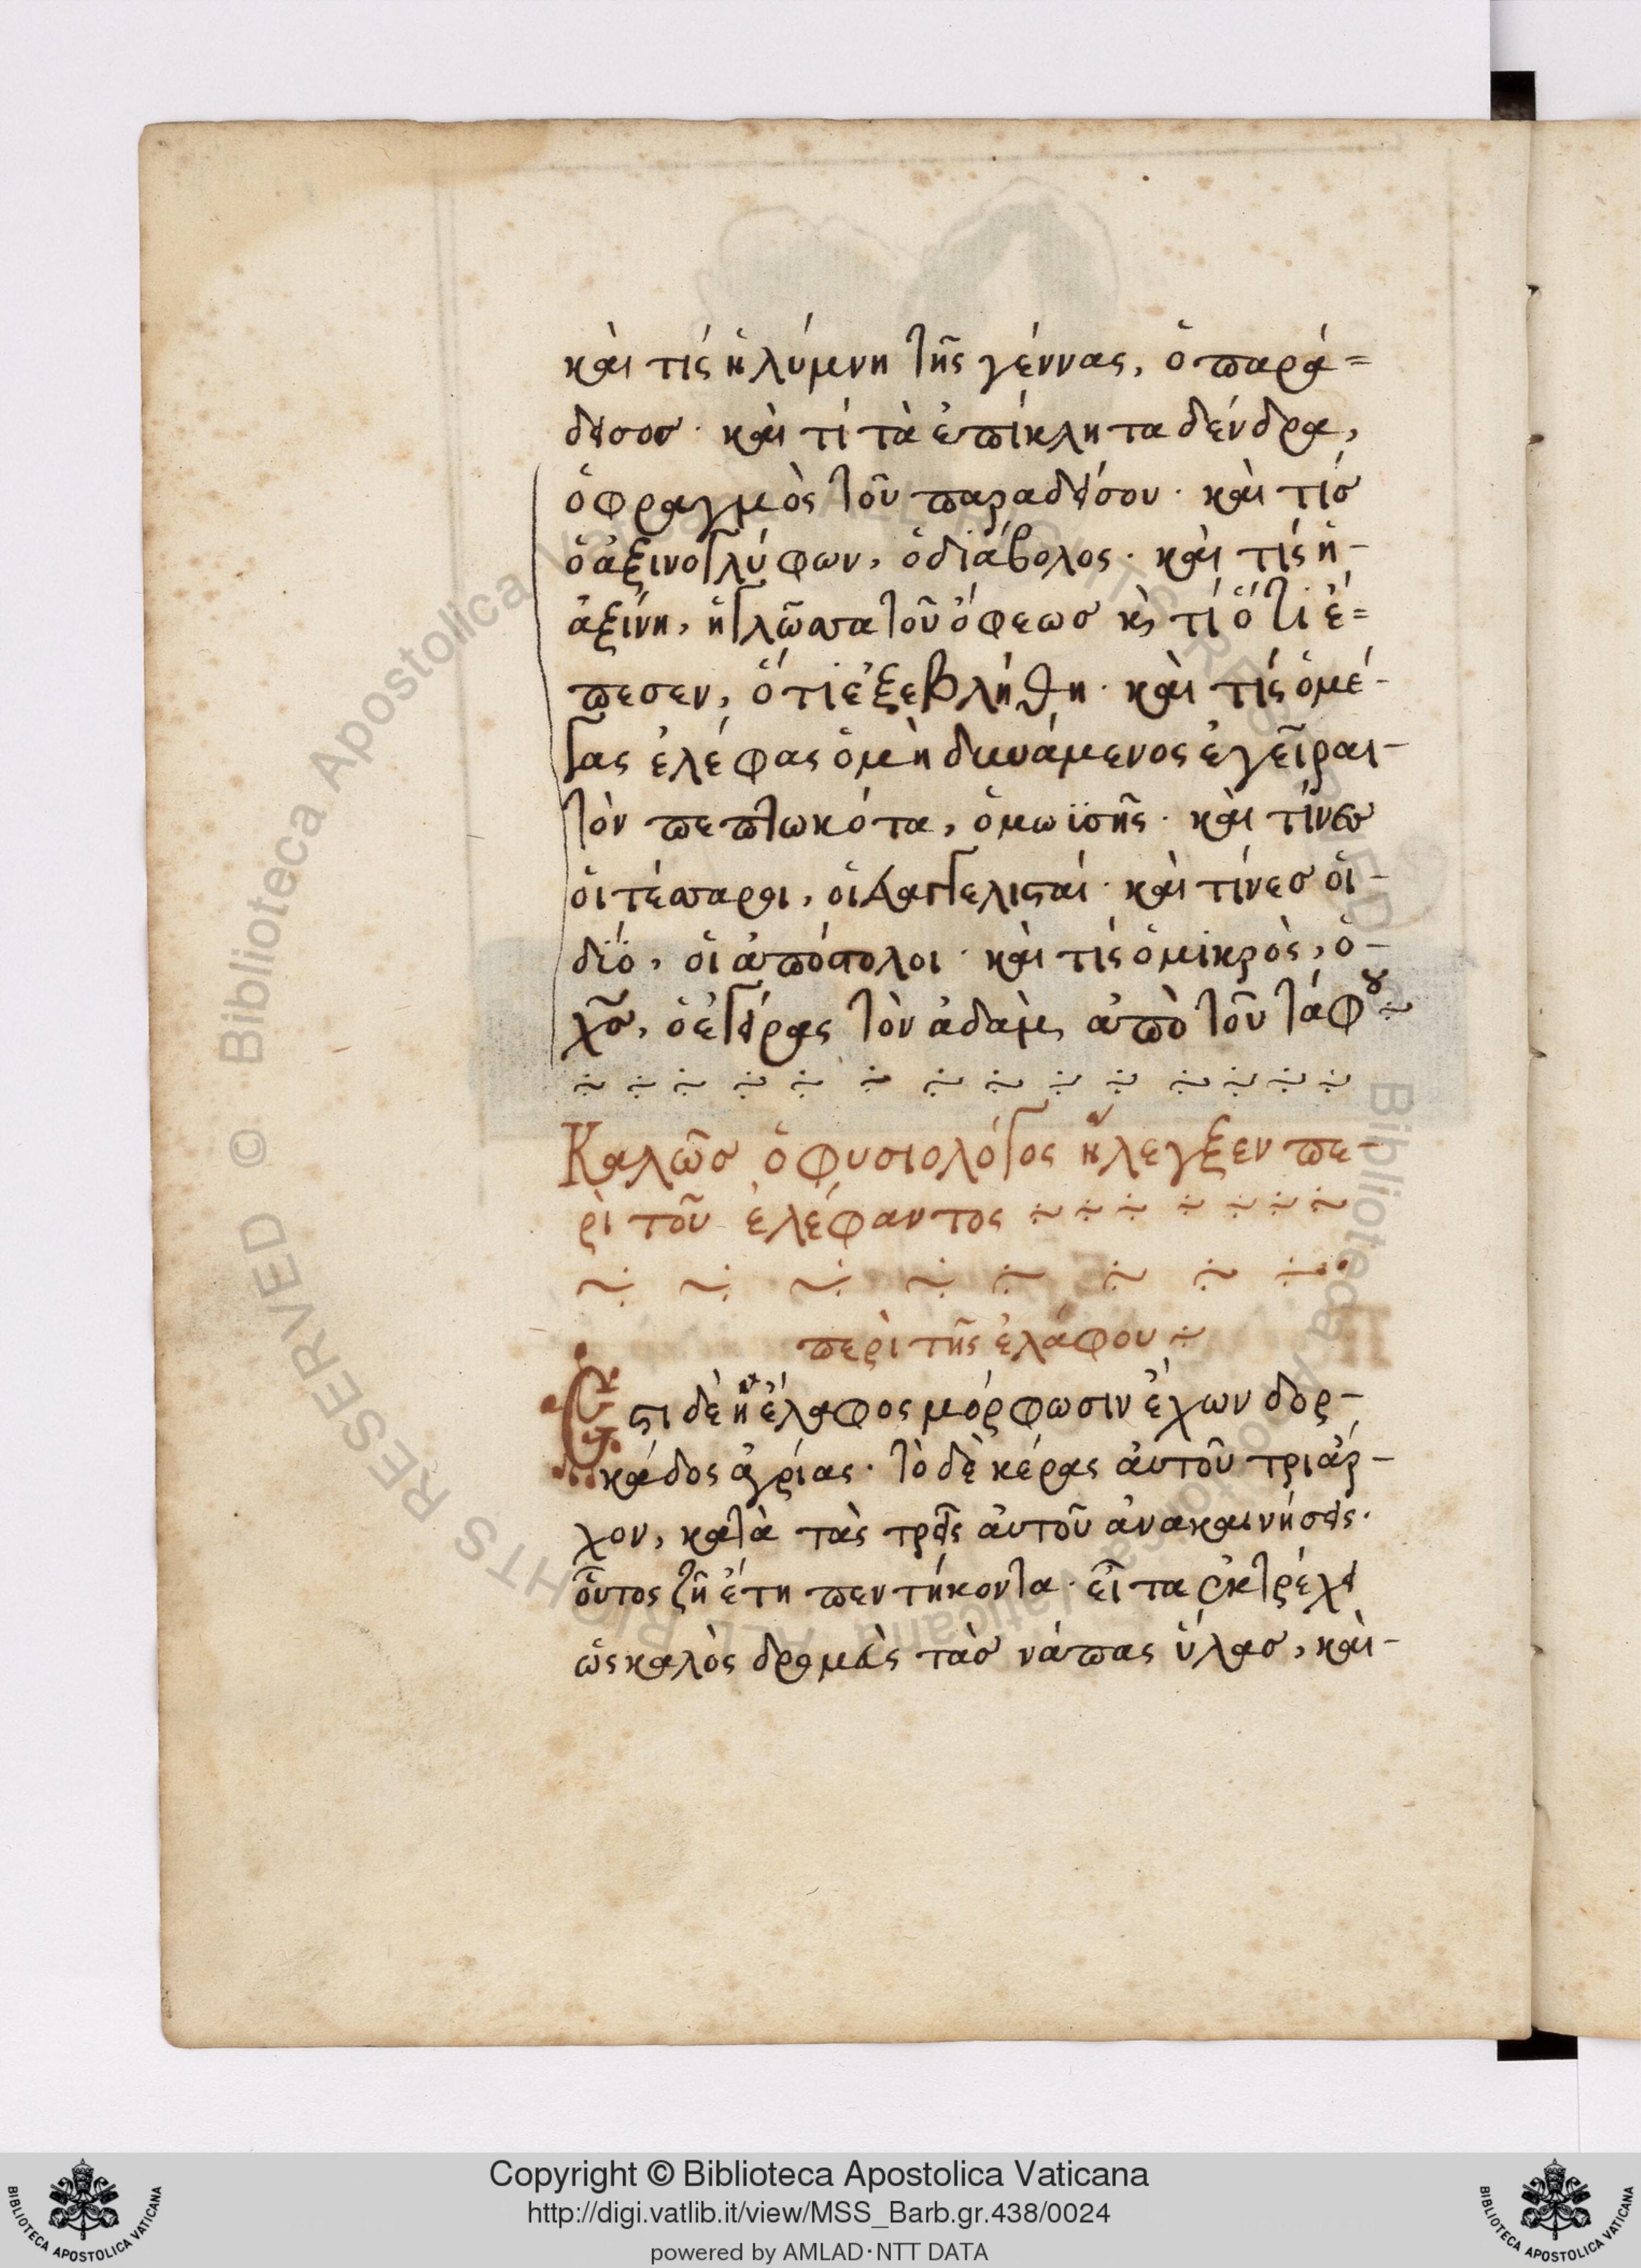 καὶ τίς ἡ λύμνη τῆς γέννας, ὁ παρά=
δεισος· καὶ τί τὰ ἐπίκλητα δένδρα,
ὁ φραγμὸς τοῦ παραδείσου· καὶ τίσ
ὁ ἀξινογλύφων, ὁ διάβολος· καὶ τίς ἡ-
ἀξίνη, ἡ γλῶσσα τοῦ ὄφεωσ κὶ τί ὅτι ἔ=
πεσεν, ὅτι ἐξεβλήθη· καὶ τίς ὁ μέ-
γας ἐλέφας ὁ μὴ δυνάμενος ἐγεῖραι-
τὸν πεπτωκότα, ὁ μωϊσῆς· καὶ τίνεσ
οἱ τέσσαροι, οἱ εὐαγγελισταί· καὶ τίνεσ οἱ-
δϊό, οἱ ἀπόστολοι· καὶ τίς ὁ μικρὸς, ὁ-
χ̅σ̅, ὁ ἐγείρας τὸν ἀδὰμ, ἀπὸ τοῦ τάφου ÷
Καλῶσ ὁ φυσιολόγος ἤλεγξεν πε-
ρὶ τοῦ ἐλέφαντος
περὶ τῆς ἐλάφου ÷
Ἔστι δὲ ἡ ἔλαφος μόρφωσιν ἔχων δορ-
κάδος ἀγρίας· τὸ δὲ κέρας ἀυτοῦ τριάρ-
χον, κατὰ τὰς τρεῖς ἀυτοῦ ἀνακαινήσεις·
οὗτος ζῆ ἔτη πεντήκοντα· εἶτα ἐκτρέχει
ὡς καλὸς δρομεὺς τὰσ νάπας ὕλασ, καὶ-
Copyright © Biblioteca Apostolica Vaticana
http://digi.vatlib.it/view/MSS_Barb.gr.438/0024
powered by AMLAD·NTT DATA
BIBLIOTECA APOSTOLICA VATICANA
BIBLIOTECA APOSTOLICA VATICANA